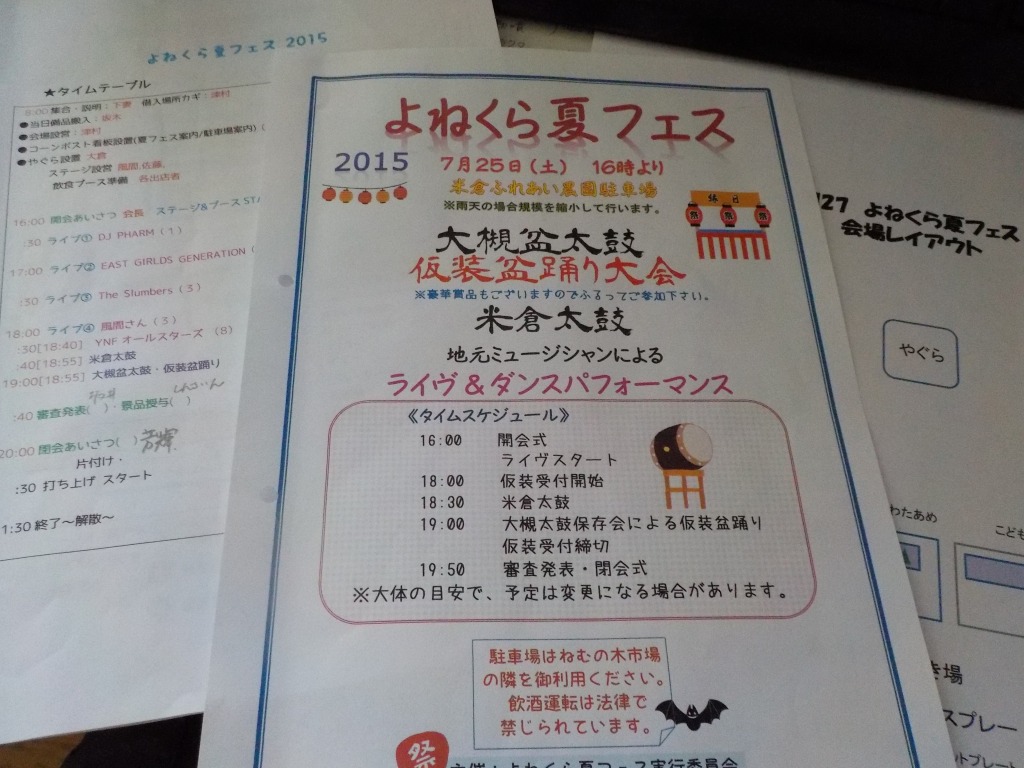 よねくら夏フェス 2015
★タイムテーブル
8:00 集合・説明：下妻　借入場所カギ：津村
●当日備品搬入：坂木
●会場設営：津村
●コーンポスト看板設置(夏フェス案内/駐車場案内)（
●やぐら設置 大倉
ステージ設営 風間,佐藤,
飲食ブース準備　各出店者
16:00 開会あいさつ 会長　ステージ&ブース STA
:30 ライブ① DJ PHARM（1）
17:00 ライブ② EAST GIRLDS GENERATION（
:30 ライブ③ The Slumbers（3）
18:00 ライブ④ 風間さん（3）
:30[18:40]　YNF オールスターズ （8）
:40[18:55] 米倉太鼓
19:00[18:55] 大槻盆太鼓・仮装盆踊り
:40 審査発表(　)・景品授与(　)
20:00 閉会あいさつ(　)
片付け・
:30 打ち上げ スタート
1:30 終了〜解散〜
よねくら夏フェス
2015　7月25日(土)　16時より
米倉ふれあい農園駐車場
※雨天の場合規模を縮小して行います。
縁日
祭 祭 祭
大槻盆太鼓
仮装盆踊り大会
※豪華賞品もございますのでふるってご参加下さい。
米倉太鼓
地元ミュージシャンによる
ライヴ＆ダンスパフォーマンス
《タイムスケジュール》
16:00　開会式
ライヴスタート
18:00　仮装受付開始
18:30　米倉太鼓
19:00　大槻太鼓保存会による仮装盆踊り
仮装受付締切
19:50　審査発表・閉会式
※大体の目安で、予定は変更になる場合があります。
駐車場はねむの木市場
の隣を御利用ください。
飲酒運転は法律で
禁じられています。
祭
主催：よねくら夏フェス実行委員会
27 よねくら夏フェス
会場レイアウト
やぐら
わたあめ
こども
き場
スプレー
ットプレート